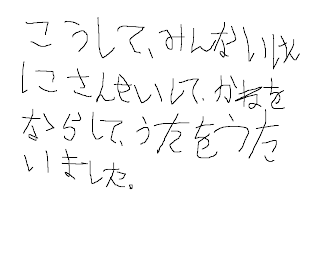 こうして、みんないけん
にさんせいして、かねを
ならして、うたをうた
いました。